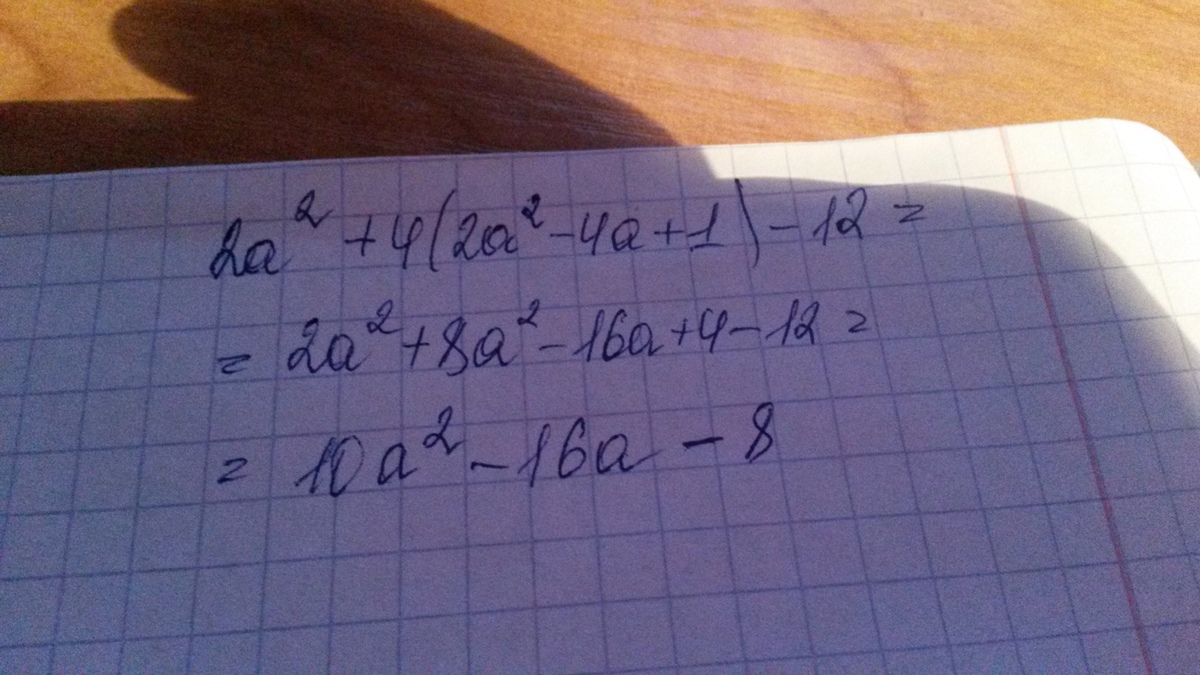 2a² + 4(2a² - 4a + 1) - 12 =
= 2a² + 8a² - 16a + 4 - 12 =
= 10a² - 16a - 8